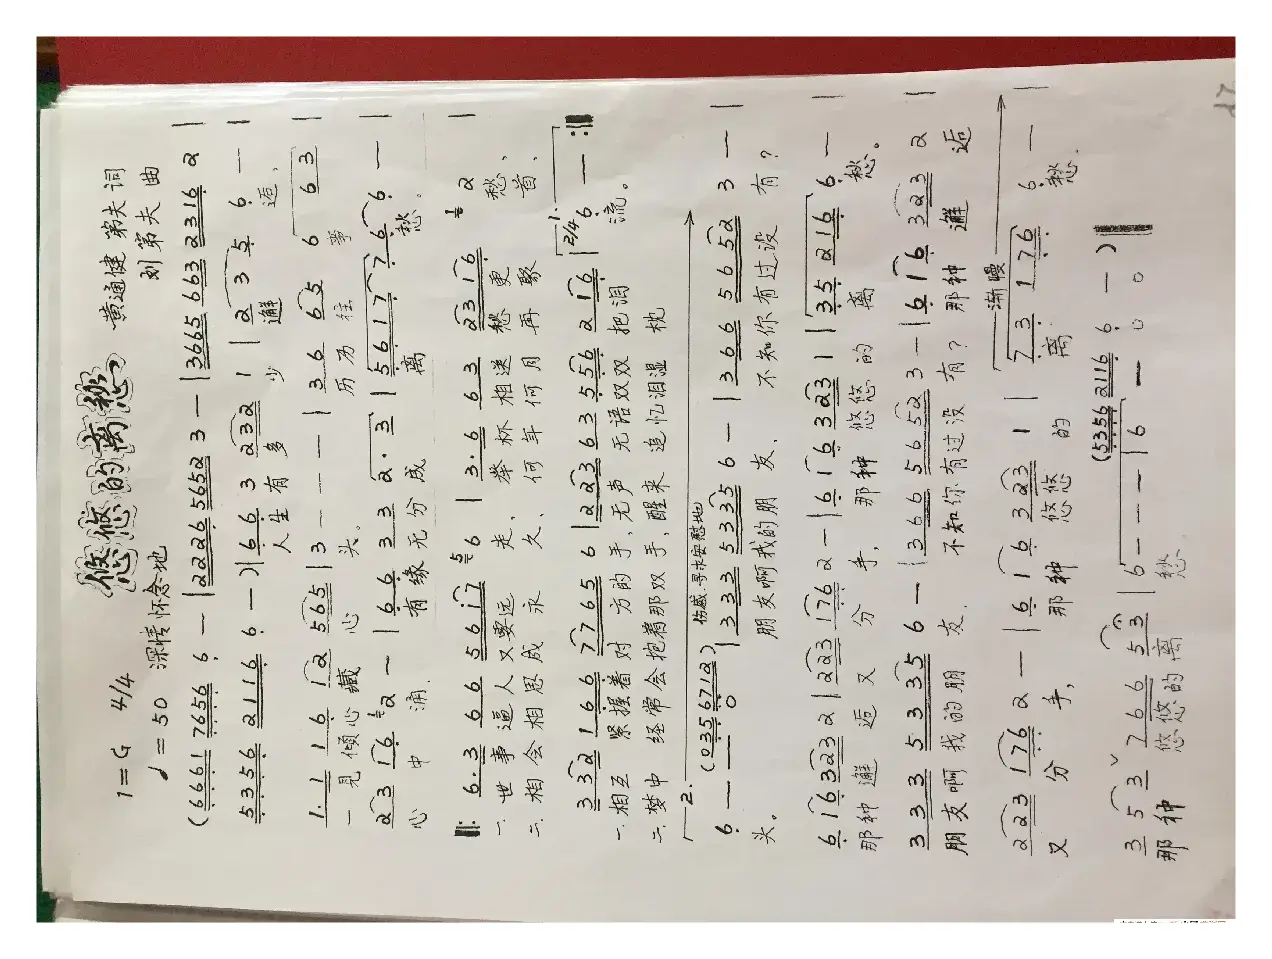 悠悠的离愁
1=G 4/4 黄通健 第夫 词
♩=50 深情怀念地 刘第夫 曲
(6661 7656 6 — | 2226 5652 3 — | 3665 663 2316 2 |
5356 2116 6 —) | 66 3 232 1 | 2 3 5 6 — |
人生有多 少 邂 逅、
1.1 16 12 565 | 3 — — — | 36 65 6 63 |
一见倾心藏 心 头。 历历往 事
23 16 2 — | 66 33 2.3 | 5617 76 6 — |
心中 涌, 有缘无分成 离 愁。
6.3 66 5617 6 | 3.6 63 2316 2 |
一.世事逼人又要远 走, 举杯相送愁更 愁、
二.相会相思成永 久、 何年何月再聚 首、
3332 166 7765 6 | 2223 63 5556 216 | 2/4 6 — :|
一.相互紧握着对方的手,无声无语双双把泪 流。
二.梦中经常会抱着那双手,醒来追忆泪湿枕
2. 伤感、寻求安慰地
6 — — 0 (0356712) | 333 5335 6 — | 366 5652 3 — |
头。 朋友啊我的朋 友, 不知你有过没 有?
616323 2 | 223 176 2 — | 616 323 1 | 35 216 6 — |
那种邂 逅 又 分 手, 那种悠悠的 离 愁。
333 5335 6 — | 366 5652 3 — | 616 323 2
朋友啊我的朋 友, 不知你有过没 有? 那种邂 逅
渐慢
223 176 2 — | 616 323 1 | 73 176 6 — |
又 分 手, 那种悠悠的 离 愁.
(5356 2116 6 —)
3 5 3 766 53 | 6 — — — | 6 — 0 0
那种 悠悠的离 愁